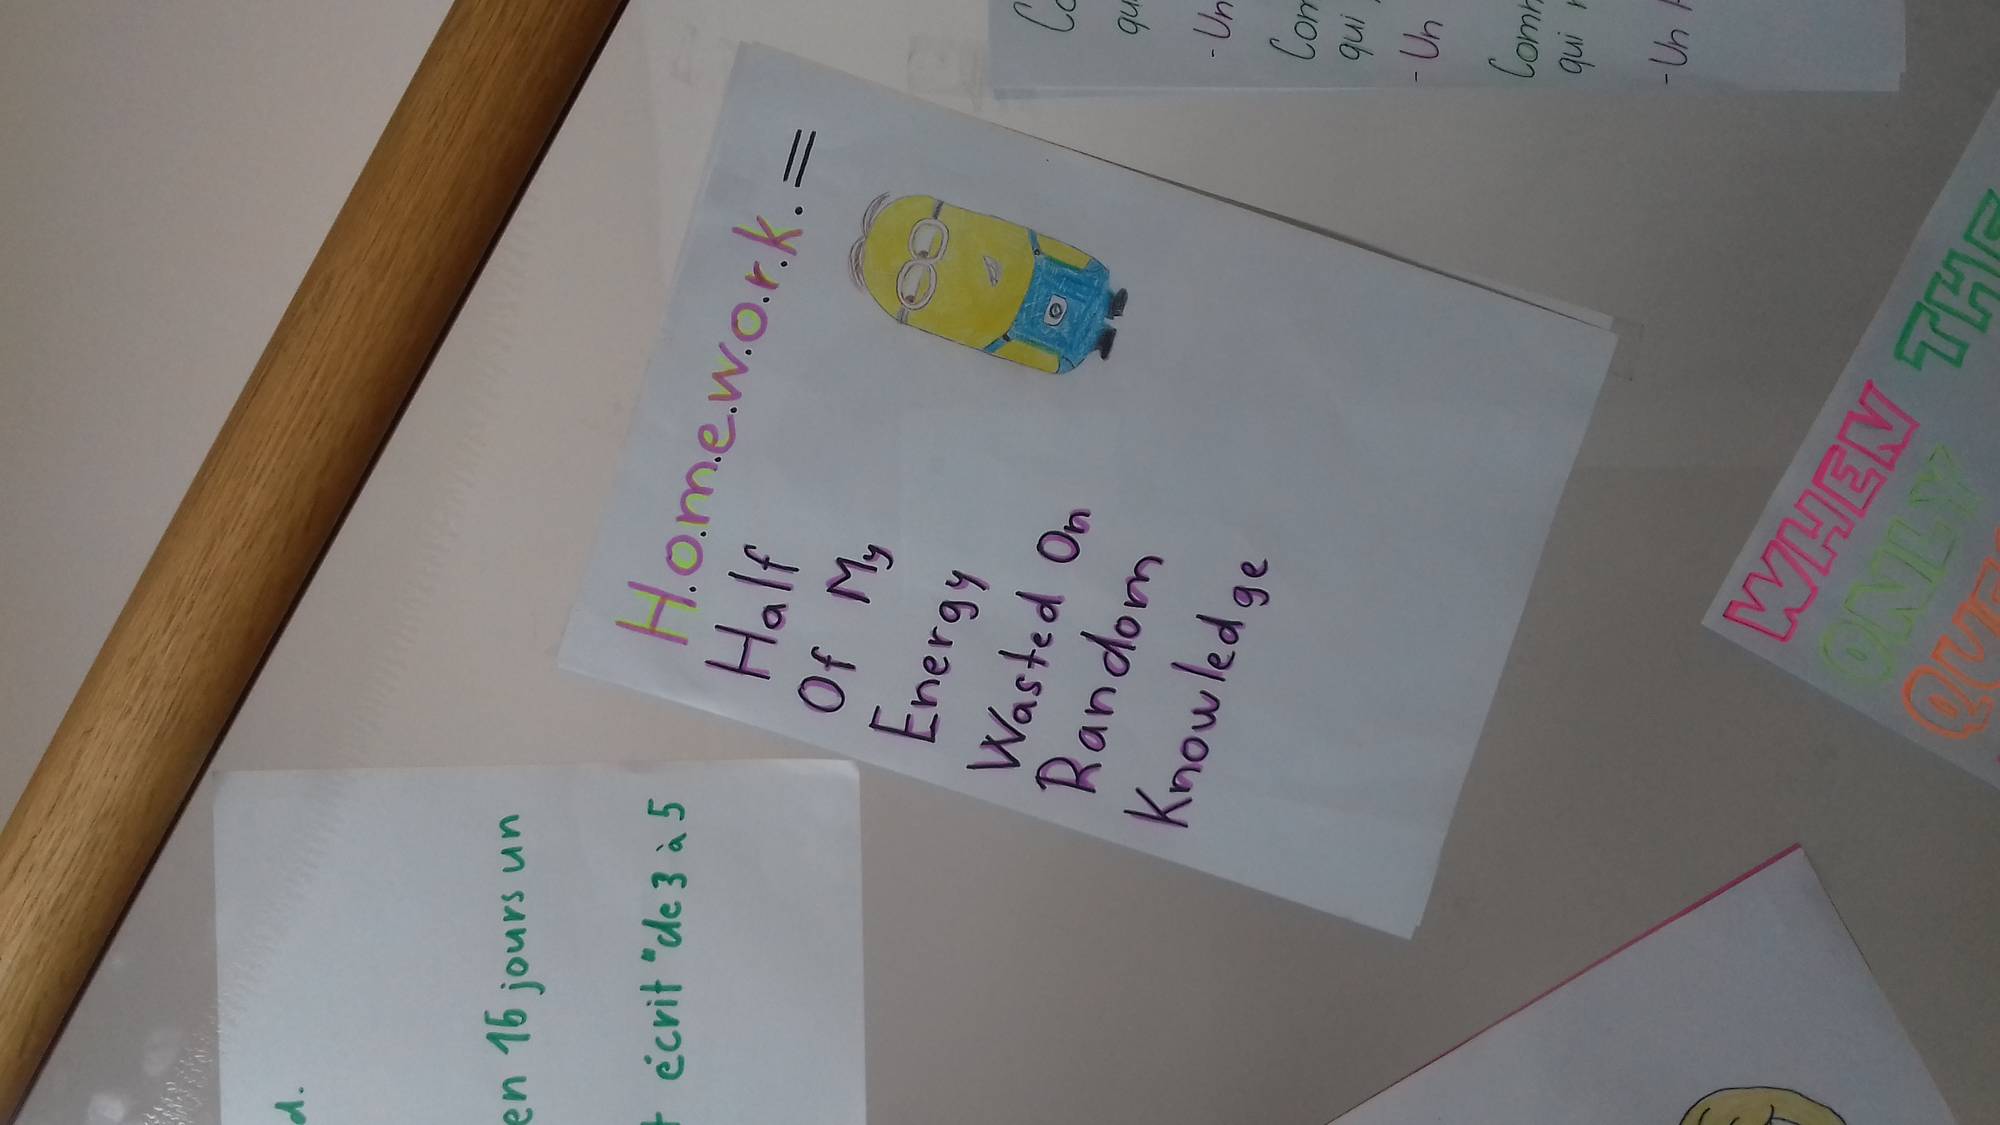 H.o.m.e.w.o.r.k. =
Half
Of My
Energy
Wasted On
Random
Knowledge
d.
en 15 jours un
écrit "de 3 à 5
qui
- Un
qui
- Un
qui
- Un
WHEN THE
ONLY